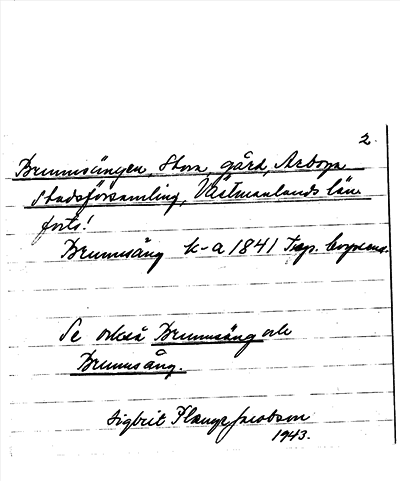 2.
Brunnsängen, Stora, gård, Arboga
Stadsförsamling, Västmanlands län
forts!
Brunnsäng k-a 1841
Se också Brunnsäng och
Brunnsäng.
Sigbrit Plænge Jacobson
1943.